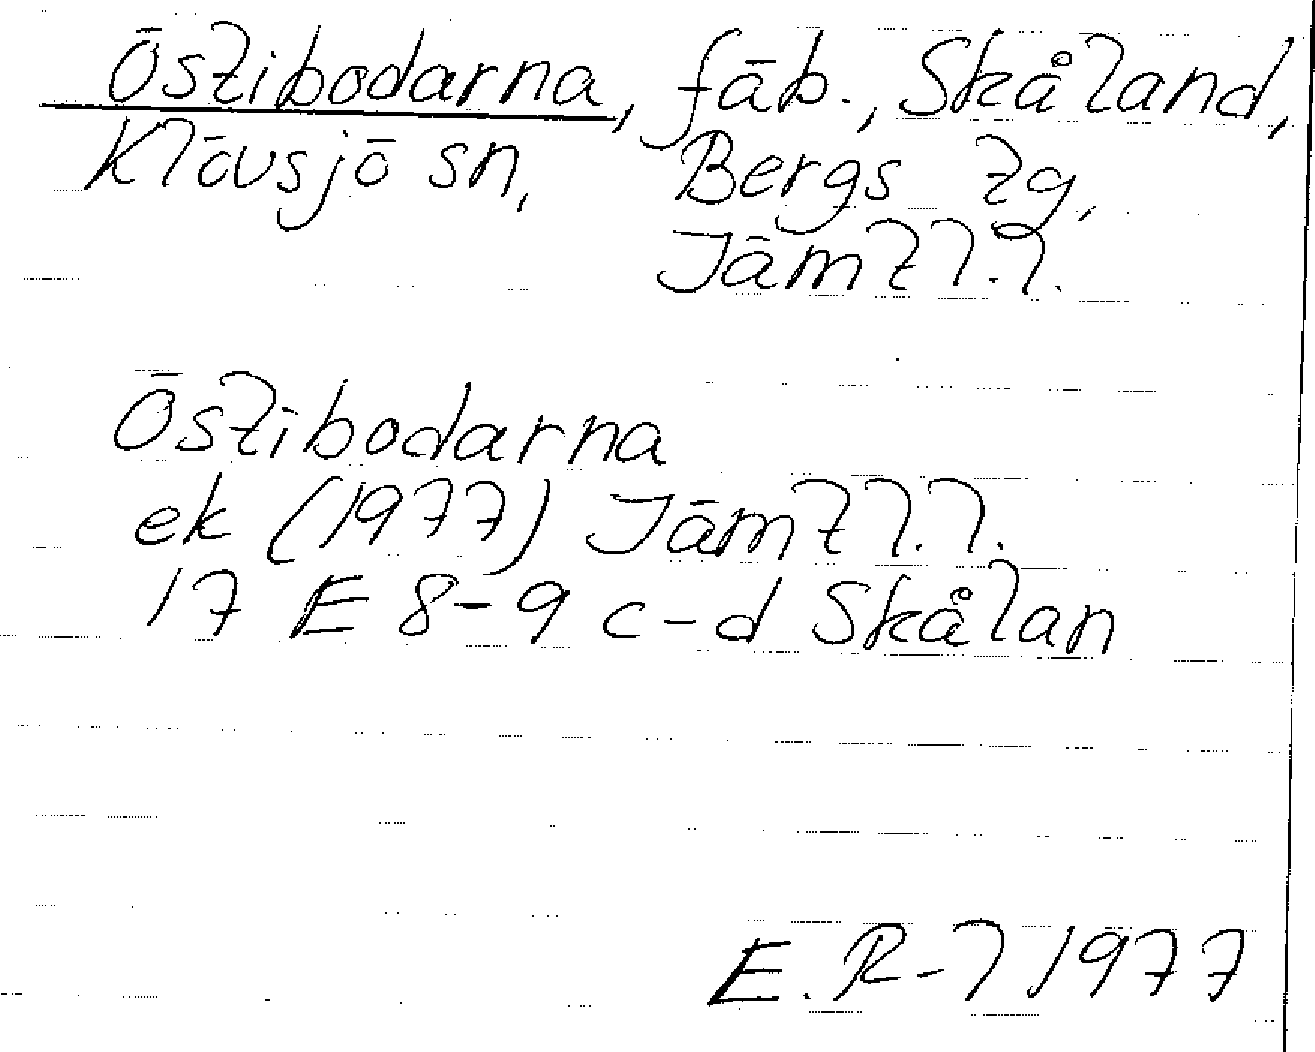 Östibodarna, fäb., Skåland,
Klövsjö sn, Bergs tg,
Jämtl.l.
Östibodarna
ek (1977) Jämtl.l.
17 E 8-9 c-d Skålan
E. R-l 1977